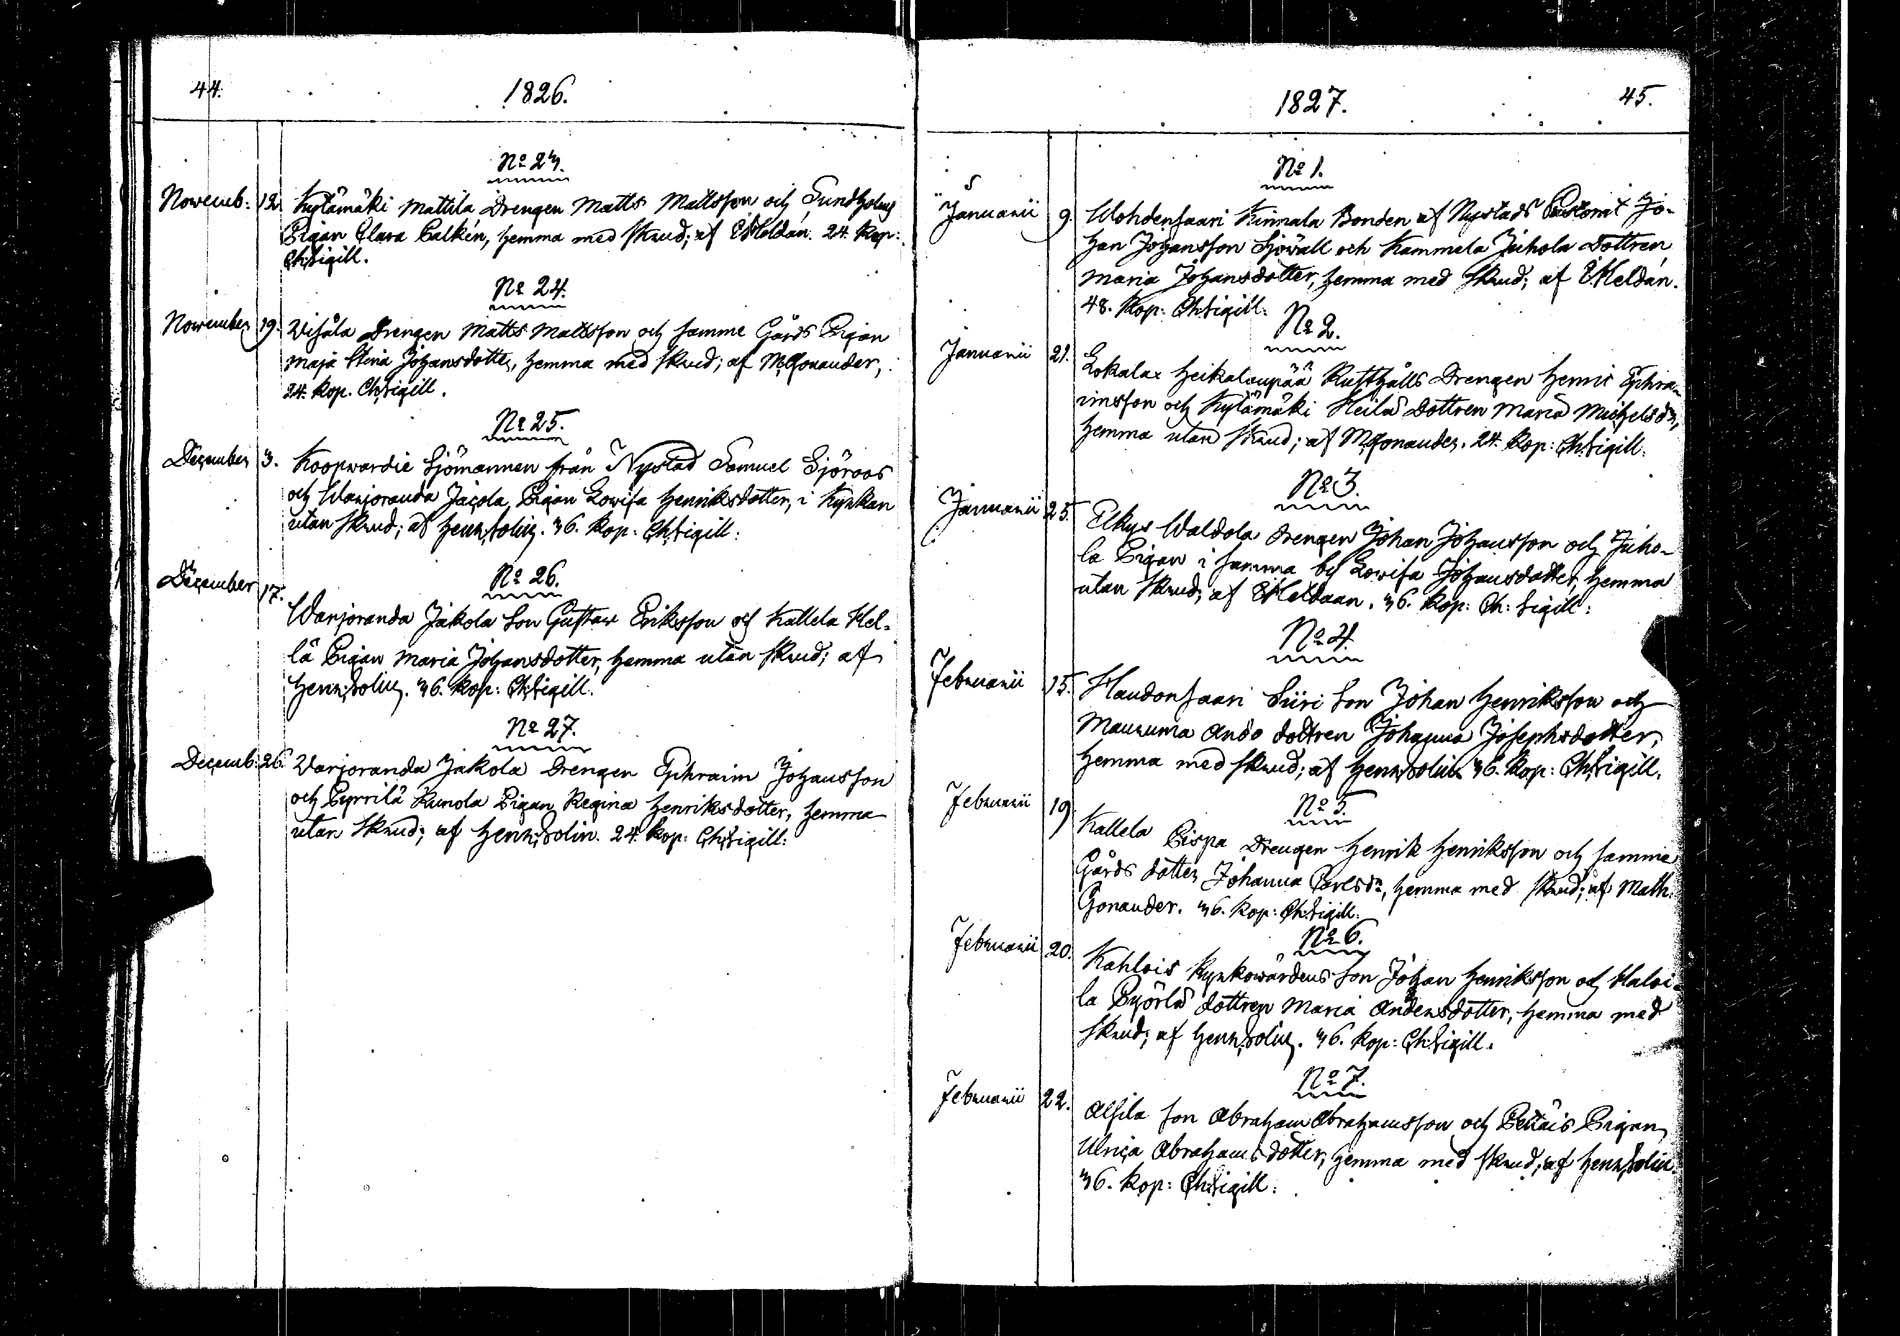 44.
1826.
No 23.
Novemb: 12. Kylämäki Mattila Drengen Matts Mattsson och Sundholms
Pigan Clara Palkén, hemma med skrud; af E.Heldán. 24. kop:
Ch:Sigill.
No 24.
November 19. Drengen Matts Mattsson och samme Gårds Pigan
Maja Stina Johansdotter, hemma med skrud; af M:Gonander,
24. kop. Ch:Sigill.
No 25.
December 3. Koopvardie Sjömannen från Nystad Samuel Sjöroos
och Warjoranda Jacola Pigan Lovisa Henriksdotter, i Kyrkan
utan skrud; af Henr:Polin. 36. kop: Ch:Sigill:
No 26.
December 17.
Warjoranda Jakola Son Gustav Eriksson och Kallela Hei-
lä Pigan Maria Johansdotter, hemma utan skrud; af
Henr:Polin. 36. kop: Ch:Sigill.
No 27.
Decemb: 26 Varjoranda Jakola Drengen Ephraim Johansson
och Pyrrilä Kunola Pigan Regina Henriksdotter, hemma
utan skrud; af Henr:Polin. 24. kop: Ch:Sigill:
1827.
45.
No 1.
Januarii 9. Wohdensaari Kinnala Bonden af Nystads Jo-
han Johansson Sjövall och Kammela Juhola Dottren
Maria Johansdotter, hemma med skrud; af E.Heldán.
48. kop: Ch:Sigill:
No 2.
Januarii 21. Lokalax Heikaloupää Rusthålls Drengen Henric Ephra-
imsson och Kylämäki Heilä Dottren Maria Michelsdr,
hemma utan skrud; af M:Gonander. 24. kop: Ch:Sigill:
No 3.
Januarii 25. Elkys Waldola Drengen Johan Johansson och Juho-
la Pigan i samma by Lovisa Johansdotter, hemma
utan skrud; af E.Heldaan. 36. kop: Ch: Sigill:
No 4.
Februarii 15. Haudonsaari Siiri Son Johan Henriksson och
Mauruma Ando dottren Johanna Josephsdotter,
hemma med skrud; af Henr:Polin 36. kop: Ch:Sigill.
No 5.
Februarii 19 Kallela Pispa Drengen Henrik Henriksson och samma
Gårds dotter Johanna Carlsdr, hemma med skrud; af Math:
Gonander. 36. kop: Ch:Sigill:
No 6.
Februarii 20. Kahlois Kyrkovärdens Son Johan Henriksson och Haloi-
la Pyörlä dottren Maria Andersdotter, hemma med
skrud; af Henr:Polin. 36. kop: Ch:Sigill.
No 7.
Februarii 22. Alhila son Abraham Abrahamsson och Pettäis Pigan
Ulrica Abrahamsdotter, hemma med skrud; af Henr:Polin
36. kop: Ch:Sigill: